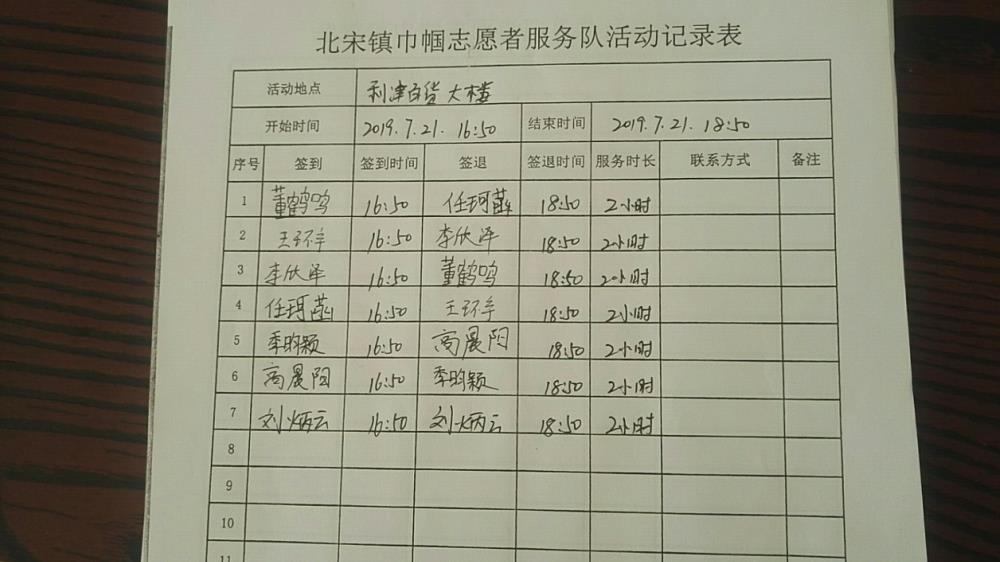 北宋镇巾帼志愿者服务队活动记录表
活动地点 利津百货大楼
开始时间 2019.7.21. 16:50 结束时间 2019.7.21. 18:50
序号 签到 签到时间 签退 签退时间 服务时长 联系方式 备注
1 董鹤鸣 16:50 任珂菡 18:50 2小时
2 王环宇 16:50 李欣泽 18:50 2小时
3 李欣泽 16:50 董鹤鸣 18:50 2小时
4 任珂菡 16:50 王环宇 18:50 2小时
5 季昀颖 16:50 高晨阳 18:50 2小时
6 高晨阳 16:50 季昀颖 18:50 2小时
7 刘炳云 16:50 刘炳云 18:50 2小时
8
9
10
11